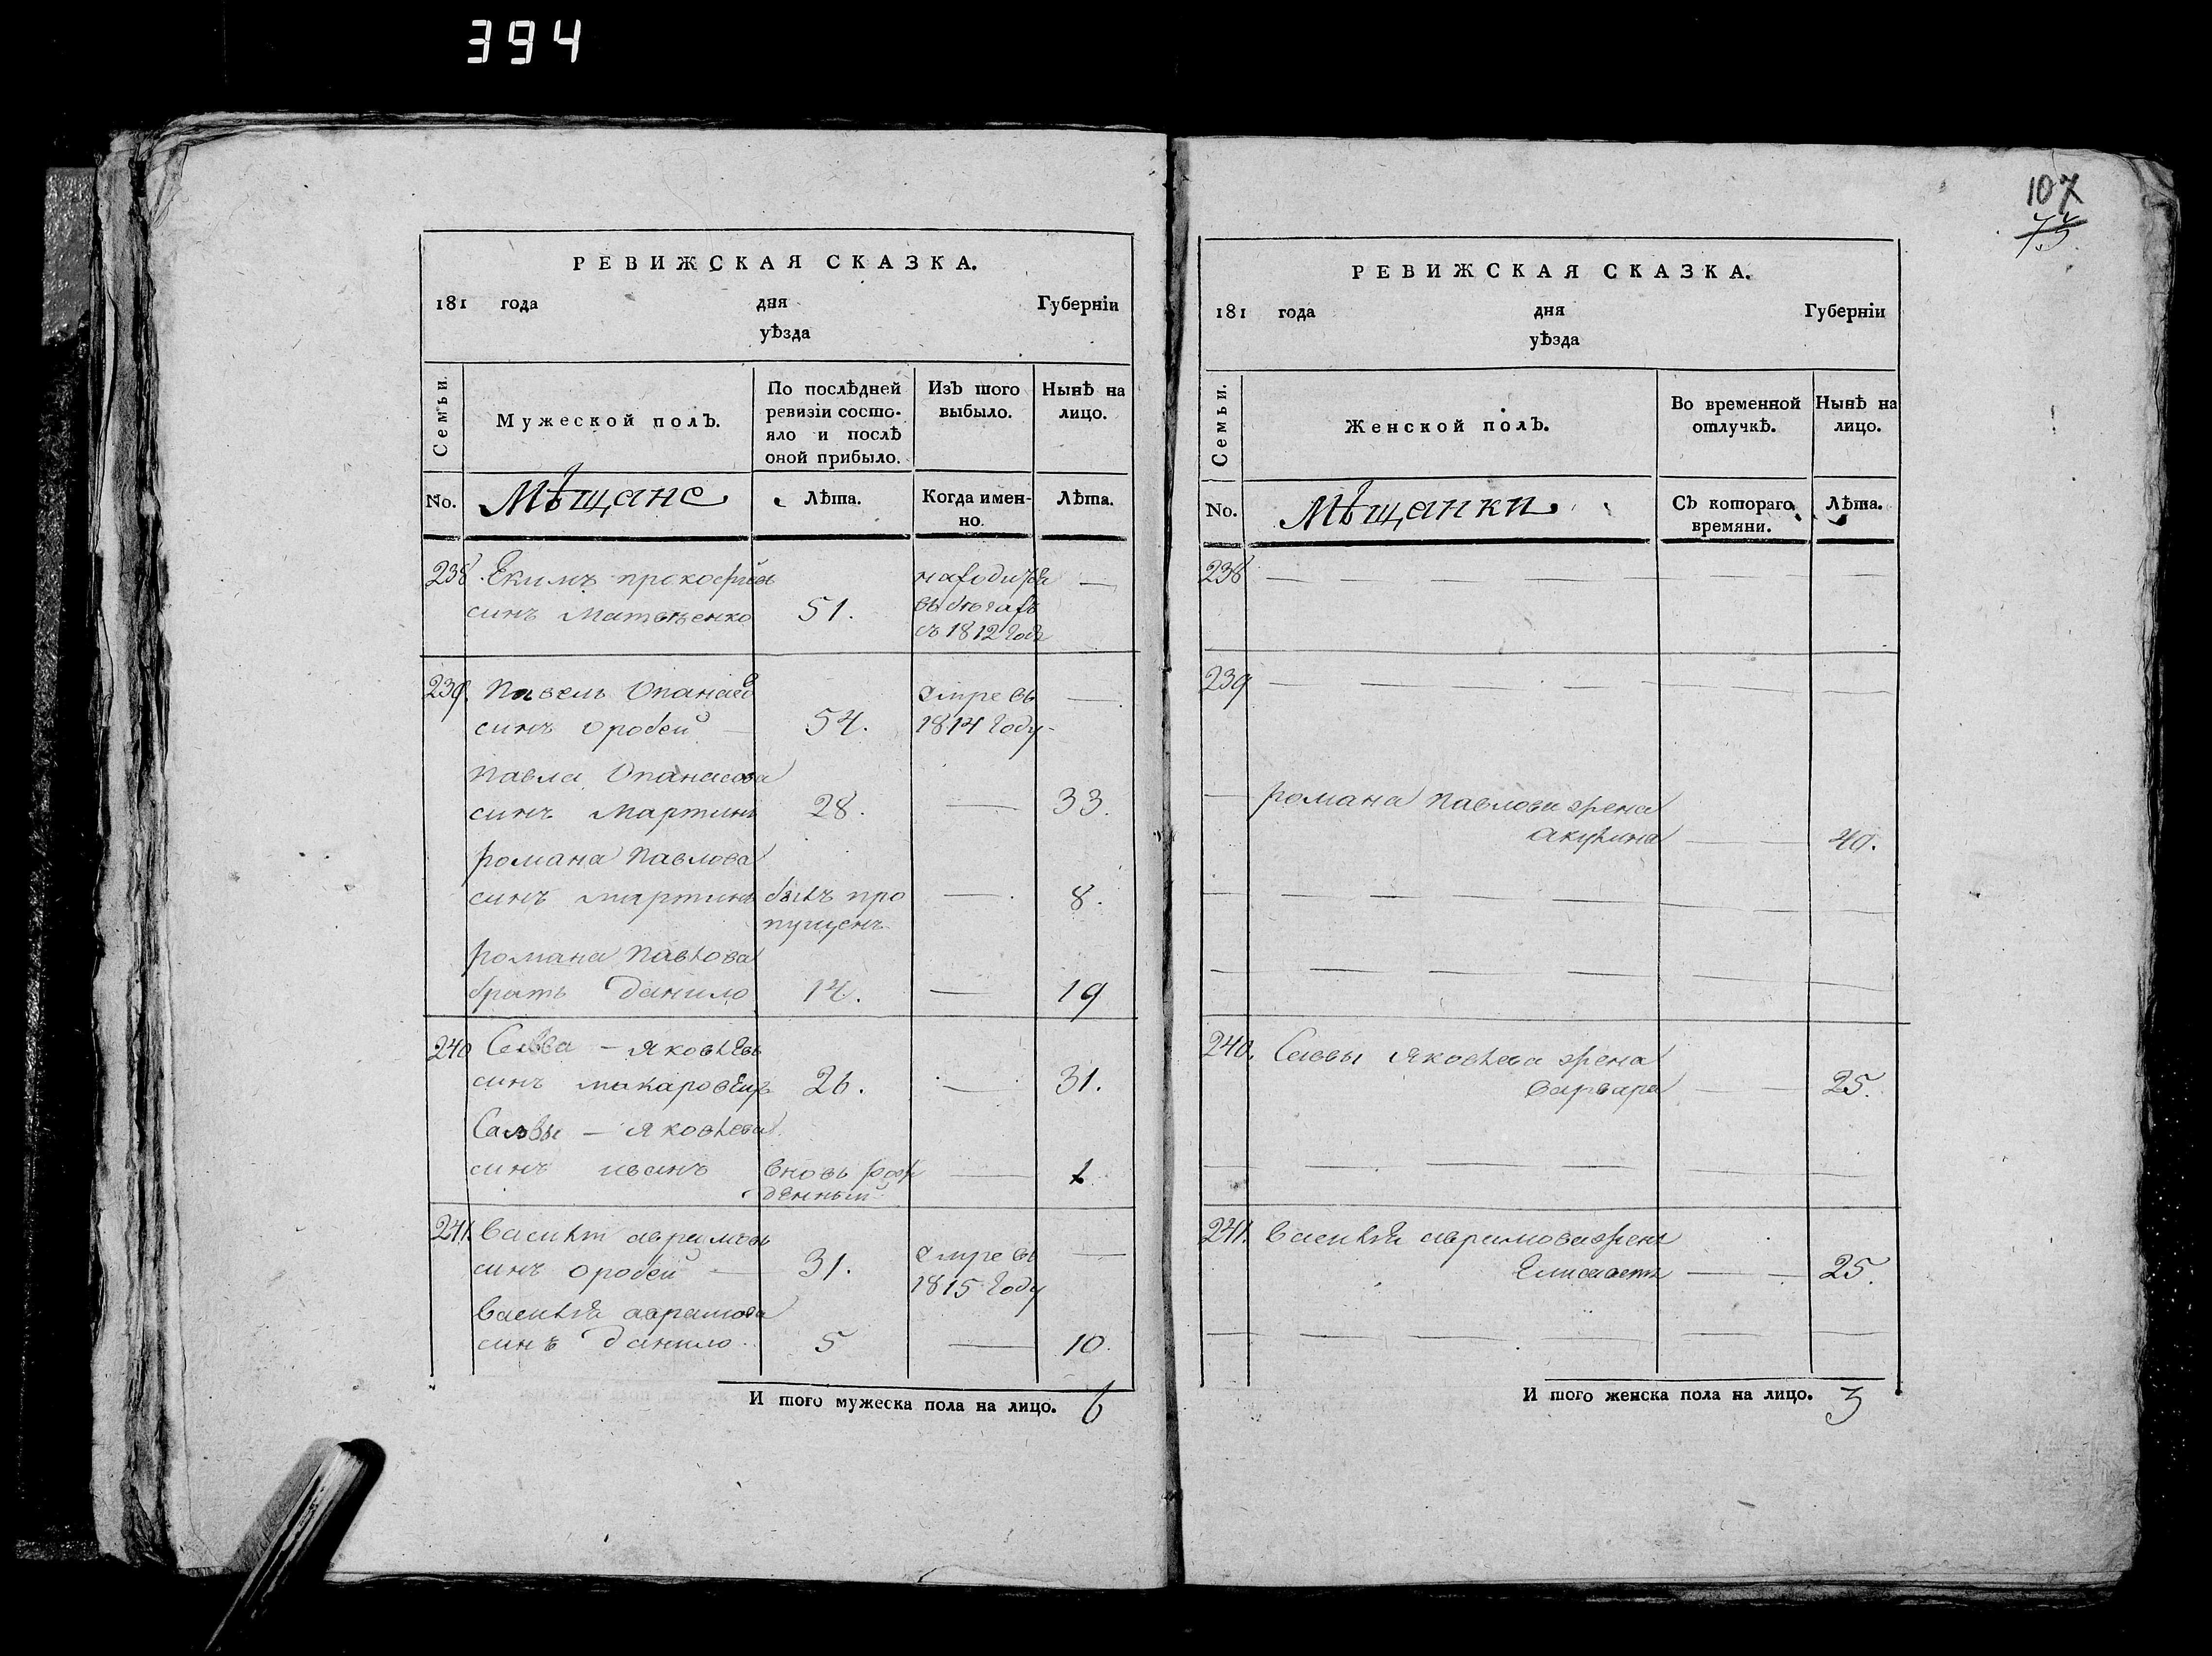 394
РЕВИЖСКАЯ СКАЗКА.
181 года дня Губерніи
уѣзда
Семьи.
Мужеской полъ.
По послѣдней ревизіи состо-
яло и послѣ оной прибыло.
Изъ того выбыло.
Нынѣ на лицо.
No. Мѣщане Лѣта. Когда имен-
но. Лѣта.
238. Екимъ прокофіевъ находится —
синъ 51. въ бѣгахъ
съ 1812 году
239. Павелъ Опанасо умре въ —
синъ оробей — 54. 1814 году
Павла Опанасова
синъ Мартинъ 28. — 33.
романа Павлова
синъ мартинъ былъ про — 8.
пущенъ
романа Павлова
братъ данило 14. — 19
240 Савва — Яковлевъ
синъ макаровецъ 26. — 31.
Саввы — Яковлева
синъ иванъ вновь рож — 1
денный
241. Василій аврамовъ умре въ —
синъ оробей — 31. 1815 году
Василія аврамова
синъ данило 5 — 10.
И того мужеска пола на лицо. 6
107
75
РЕВИЖСКАЯ СКАЗКА.
181 года дня Губерніи
уѣзда
Семьи.
Женской полъ.
Во временной отлучкѣ.
Нынѣ на лицо.
No. Мѣщанки Съ котораго
времяни. Лѣта.
238
239
романа Павлова жена
акулина — 40.
240. Саввы Яковлева жена
варвара — 25.
241. Василія аврамова жена
Елисаветъ — 25.
И того женска пола на лицо. 3